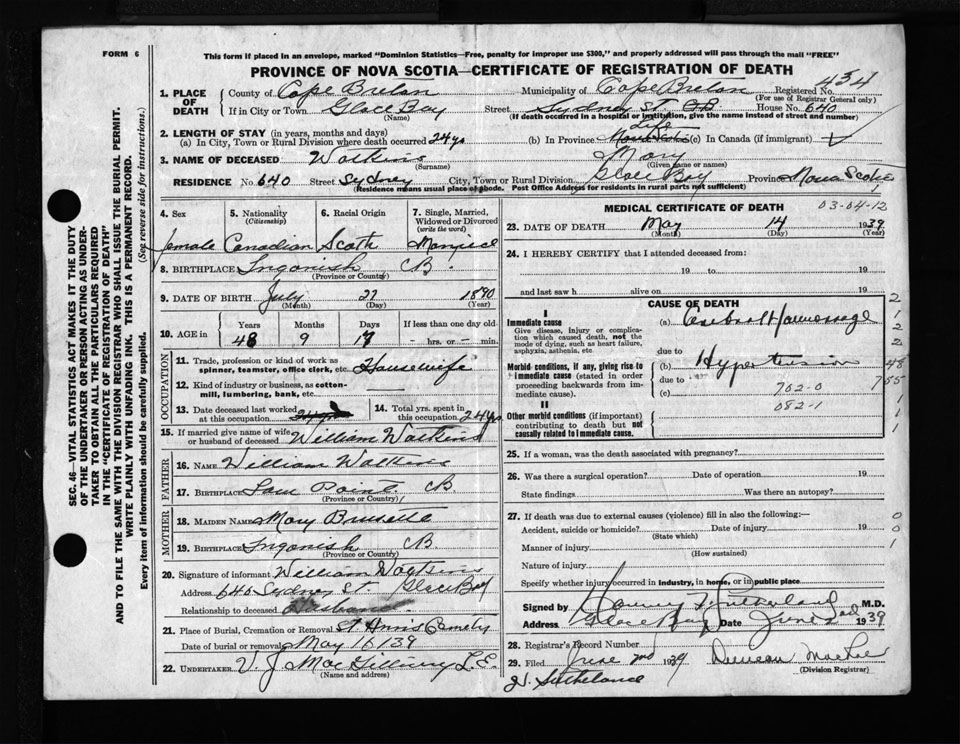 FORM 6
This form if placed in an envelope, marked "Dominion Statistics—Free, penalty for improper use $300," and properly addressed will pass through the mail "FREE"
PROVINCE OF NOVA SCOTIA—CERTIFICATE OF REGISTRATION OF DEATH
434
1. PLACE OF DEATH County of Cape Breton Municipality of Cape Breton Registered No.
(For use of Registrar General only)
If in City or Town Glace Bay Street Sydney St CB House No. 640
(Name) (If death occurred in a hospital or institution, give the name instead of street and number)
2. LENGTH OF STAY (in years, months and days)
(a) In City, Town or Rural Division where death occurred 24 ys (b) In Province Life Nova Scotia (c) In Canada (if immigrant)
3. NAME OF DECEASED Watkins Mary
(Surname) (Given name or names)
RESIDENCE No. 640 Street Sydney City, Town or Rural Division Glace Bay Province Nova Scotia
(Residence means usual place of abode. Post Office Address for residents in rural parts not sufficient) 1
4. Sex 5. Nationality (Citizenship) 6. Racial Origin 7. Single, Married, Widowed or Divorced (write the word)
female Canadian Scoth Married
8. BIRTHPLACE Ingonish CB.
(Province or Country)
9. DATE OF BIRTH July 27 1890
(Month) (Day) (Year)
10. AGE in Years Months Days If less than one day old
48 9 17 – hrs. or – min.
OCCUPATION
11. Trade, profession or kind of work as spinner, teamster, office clerk, etc. Housewife
12. Kind of industry or business, as cotton-mill, lumbering, bank, etc.
13. Date deceased last worked at this occupation 14. Total yrs. spent in this occupation 24 ys
15. If married give name of wife or husband of deceased William Watkins
FATHER
16. NAME William Watkins
17. BIRTHPLACE Low Point. CB.
(Province or Country)
MOTHER
18. MAIDEN NAME Mary
19. BIRTHPLACE Ingonish CB
(Province or Country)
20. Signature of informant William Watkins
Address 640 Sydney St. Glace Bay
Relationship to deceased Husband.
21. Place of Burial, Cremation or Removal St. Anns Cemety
Date of burial or removal May 16/39
22. UNDERTAKER V. J. MacGillivray L.E.
(Name and address)
MEDICAL CERTIFICATE OF DEATH 03-04-12
23. DATE OF DEATH May 14 1939
(Month) (Day) (Year)
24. I HEREBY CERTIFY that I attended deceased from:
19 to 19
and last saw h alive on 19
CAUSE OF DEATH
I
Immediate cause (a) Cerebral Haemorrage
Give disease, injury or complication which caused death, not the mode of dying, such as heart failure, asphyxia, asthenia, etc
due to
Morbid conditions, if any, giving rise to immediate cause (stated in order proceeding backwards from immediate cause). (b) Hypertension
due to
(c) 702-0
082-1
II
Other morbid conditions (if important) contributing to death but not causally related to immediate cause.
2
1
2
2
48
755
1
1
1
25. If a woman, was the death associated with pregnancy?
26. Was there a surgical operation? Date of operation 19
State findings Was there an autopsy?
27. If death was due to external causes (violence) fill in also the following:—
Accident, suicide or homicide? Date of injury 19
(State which)
Manner of injury
(How sustained)
Nature of injury
Specify whether injury occurred in industry, in home, or in public place
0
0
1
Signed by Sutherland M.D.
Address Glace Bay Date June 2nd 1939
28. Registrar's Record Number
29. Filed June 2nd 1939 Duncan MacRae
(Division Registrar)
N. Sutherland
SEC. 46—VITAL STATISTICS ACT MAKES IT THE DUTY
OF THE UNDERTAKER OR PERSON ACTING AS UNDERTAKER TO OBTAIN ALL THE PARTICULARS REQUIRED
IN THE "CERTIFICATE OF REGISTRATION OF DEATH"
AND TO FILE THE SAME WITH THE DIVISION REGISTRAR WHO SHALL ISSUE THE BURIAL PERMIT.
WRITE PLAINLY WITH UNFADING INK. THIS IS A PERMANENT RECORD.
Every item of information should be carefully supplied. (See reverse side for instructions.)